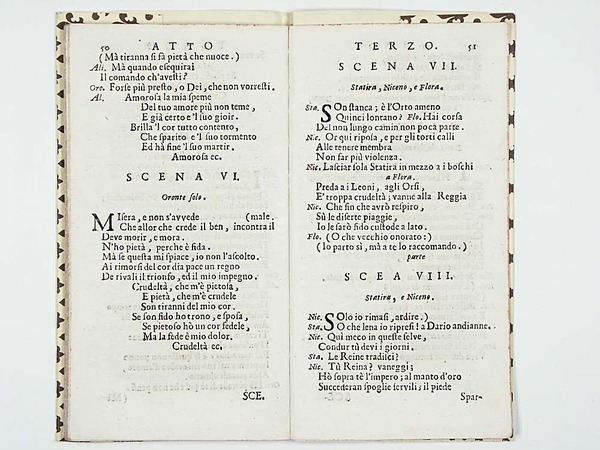 50 ATTO
(Mà tiranna si fà pietà che nuoce.)
Ali. Mà quando esequirai
Il comando ch'avesti?
Oro. Forse più presto, o Dei, che non vorresti.
Al. Amorosa la mia speme
Del tuo amore più non teme,
E già certo e'l suo gioir.
Brilla'l cor tutto contento,
Che sparito e'l suo tormento
Ed hà fine'l suo martir.
Amorosa ec.
SCENA VI.
Oronte solo.
Misera, e non s'avvede (male.
Che allor che crede il ben, incontra il
Deve morir, e mora.
N'ho pietà, perche è fida.
Mà se questa mi spiace, io non l'ascolto.
Ai rimorsi del cor dia pace un regno
De rivali il trionfo, ed il mio impegno.
Crudeltà, che m'è pietosa,
E pietà, che m'è crudele
Son tiranni del mio cor.
Se son fido ho trono, e sposa,
Se pietoso hò un cor fedele,
Ma la fede è mio dolor.
Crudeltà ec.
SCE.
TERZO. 51
SCENA VII.
Statira, Niceno, e Flora.
Sta. SOn stanca; è l'Orto ameno
Quinci lontano? Flo. Hai corsa
Del non lungo camin non poca parte.
Nic. Or qui riposa, e per gli torti calli
Alle tenere membra
Non far più violenza.
Nic. Lasciar sola Statira in mezzo a i boschi
a Flora.
Preda a i Leoni, agli Orsi,
E' troppa crudeltà; vanne alla Reggia
Nic. Che fin che avrò respiro,
Sù le diserte piaggie,
Io le sarò fido custode a lato.
Flo. (O che vecchio onorato:)
(Io parto sì, mà a te lo raccomando.)
parte
SCEA VIII.
Statira, e Niceno.
Nic. SOlo io rimasi, ardire.)
Sta. O che lena io ripresi! a Dario andianne.
Nic. Qui meco in queste selve,
Condur tù devi i giorni.
Sta. Le Reine tradisci?
Nic. Tù Reina? vaneggi;
Hò sopra tè l'impero; al manto d'oro
Succederan spoglie servili; il piede
Spar-